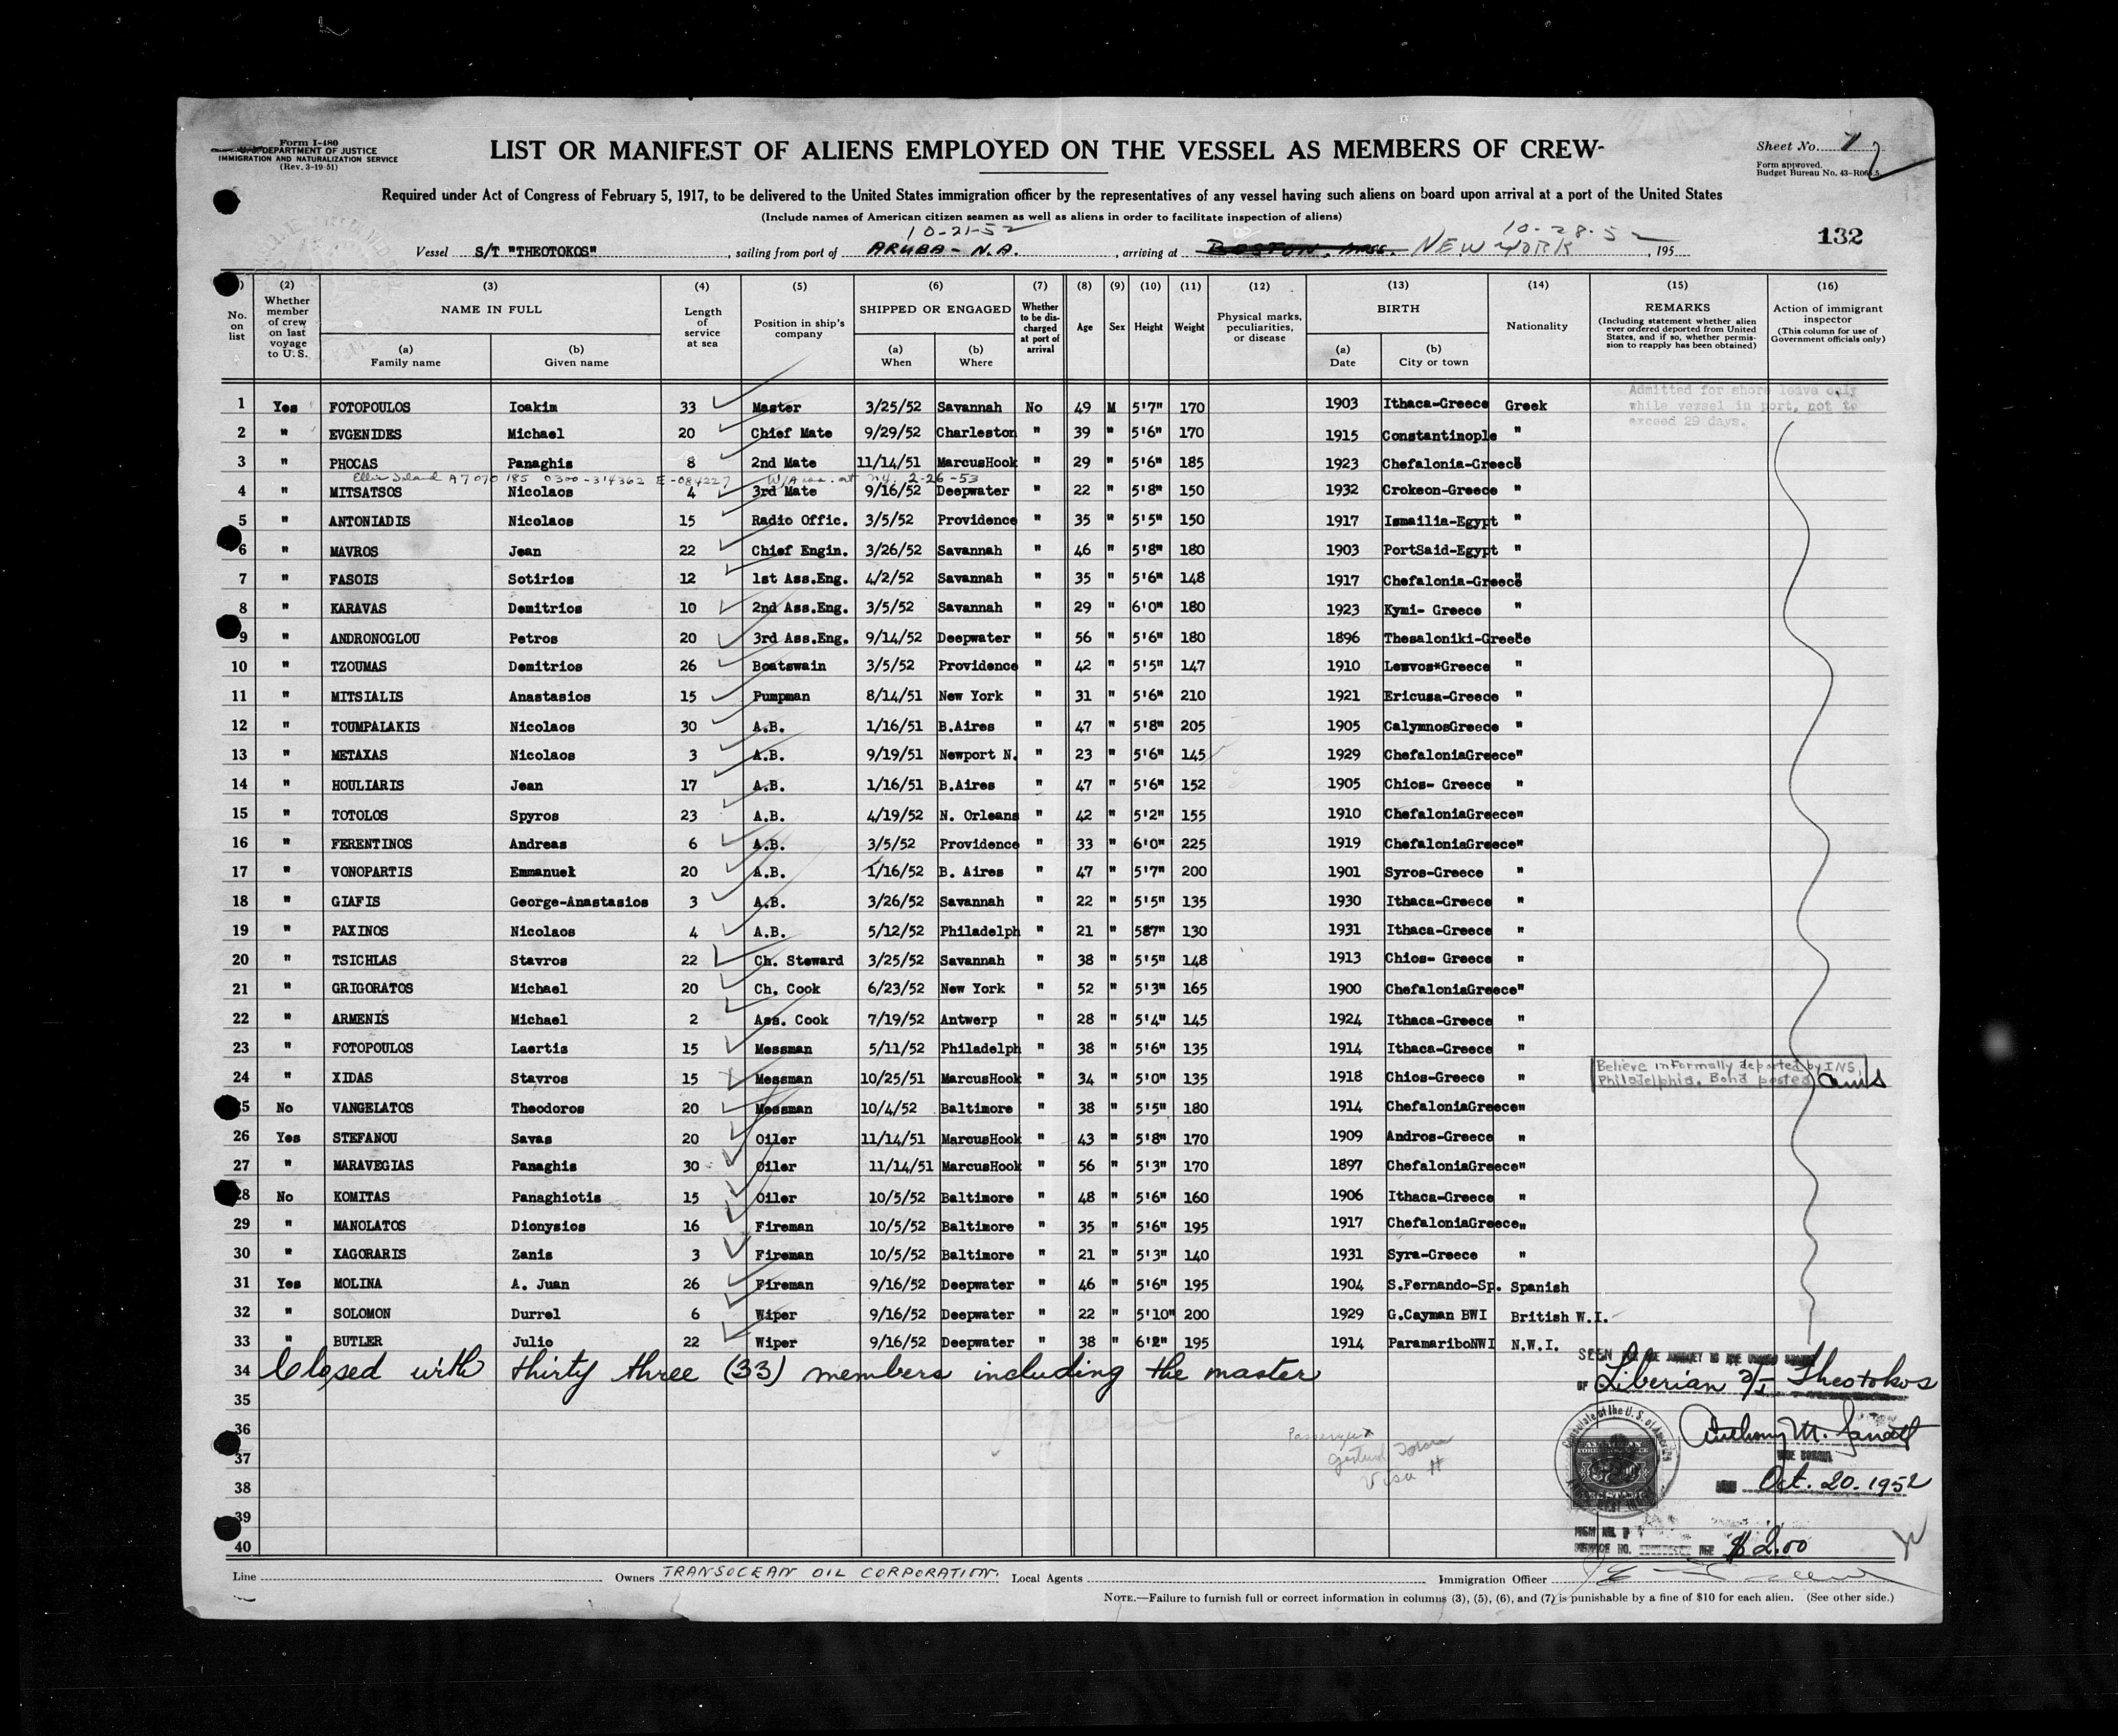 Form I-480
U. S. DEPARTMENT OF JUSTICE
IMMIGRATION AND NATURALIZATION SERVICE
(Rev. 3-19-51)
LIST OR MANIFEST OF ALIENS EMPLOYED ON THE VESSEL AS MEMBERS OF CREW
Sheet No. 1 2
Form approved.
Budget Bureau No. 43-R065.5.
Required under Act of Congress of February 5, 1917, to be delivered to the United States immigration officer by the representatives of any vessel having such aliens on board upon arrival at a port of the United States
(Include names of American citizen seamen as well as aliens in order to facilitate inspection of aliens)
10-21-52 10-28-52
132
Vessel S/T "THEOTOKOS", sailing from port of ARUBA - N.A., arriving at BOSTON, MASS. NEW YORK, 195
(1) No. on list (2) Whether member of crew on last voyage to U. S. (3) NAME IN FULL (a) Family name (b) Given name (4) Length of service at sea (5) Position in ship's company (6) SHIPPED OR ENGAGED (a) When (b) Where (7) Whether to be discharged at port of arrival (8) Age (9) Sex (10) Height (11) Weight (12) Physical marks, peculiarities, or disease (13) BIRTH (a) Date (b) City or town (14) Nationality (15) REMARKS (Including statement whether alien ever ordered deported from United States, and if so, whether permission to reapply has been obtained) (16) Action of immigrant inspector (This column for use of Government officials only)
Admitted for shore leave only
while vessel in port, not to
exceed 29 days.
1 Yes FOTOPOULOS Ioakim 33 Master 3/25/52 Savannah No 49 M 5'7" 170 1903 Ithaca-Greece Greek
2 " EVGENIDES Michael 20 Chief Mate 9/29/52 Charleston " 39 " 5'6" 170 1915 Constantinople "
3 " PHOCAS Panaghis 8 2nd Mate 11/14/51 MarcusHook " 29 " 5'6" 185 1923 Chefalonia-Greece "
Ellis Island A7070185 0300-314362 E-084227 at N.Y. 2-26-53
4 " MITSATSOS Nicolaos 4 3rd Mate 9/16/52 Deepwater " 22 " 5'8" 150 1932 Crokeon-Greece "
5 " ANTONIADIS Nicolaos 15 Radio Offic. 3/5/52 Providence " 35 " 5'5" 150 1917 Ismailia-Egypt "
6 " MAVROS Jean 22 Chief Engin. 3/26/52 Savannah " 46 " 5'8" 180 1903 PortSaid-Egypt "
7 " FASOIS Sotirios 12 1st Ass.Eng. 4/2/52 Savannah " 35 " 5'6" 148 1917 Chefalonia-Greece "
8 " KARAVAS Demitrios 10 2nd Ass.Eng. 3/5/52 Savannah " 29 " 6'0" 180 1923 Kymi- Greece "
9 " ANDRONOGLOU Petros 20 3rd Ass.Eng. 9/14/52 Deepwater " 56 " 5'6" 180 1896 Thesaloniki-Greece "
10 " TZOUMAS Demitrios 26 Boatswain 3/5/52 Providence " 42 " 5'5" 147 1910 Lesvos*Greece "
11 " MITSIALIS Anastasios 15 Pumpman 8/14/51 New York " 31 " 5'6" 210 1921 Ericusa-Greece "
12 " TOUMPALAKIS Nicolaos 30 A.B. 1/16/51 B.Aires " 47 " 5'8" 205 1905 CalymnosGreece "
13 " METAXAS Nicolaos 3 A.B. 9/19/51 Newport N. " 23 " 5'6" 145 1929 ChefaloniaGreece "
14 " HOULIARIS Jean 17 A.B. 1/16/51 B.Aires " 47 " 5'6" 152 1905 Chios- Greece "
15 " TOTOLOS Spyros 23 A.B. 4/19/52 N. Orleans " 42 " 5'2" 155 1910 ChefaloniaGreece "
16 " FERENTINOS Andreas 6 A.B. 3/5/52 Providence " 33 " 6'0" 225 1919 ChefaloniaGreece "
17 " VONOPARTIS Emmanuel 20 A.B. 1/16/52 B. Aires " 47 " 5'7" 200 1901 Syros-Greece "
18 " GIAFIS George-Anastasios 3 A.B. 3/26/52 Savannah " 22 " 5'5" 135 1930 Ithaca-Greece "
19 " PAXINOS Nicolaos 4 A.B. 5/12/52 Philadelph " 21 " 587" 130 1931 Ithaca-Greece "
20 " TSICHLAS Stavros 22 Ch. Steward 3/25/52 Savannah " 38 " 5'5" 148 1913 Chios- Greece "
21 " GRIGORATOS Michael 20 Ch. Cook 6/23/52 New York " 52 " 5'3" 165 1900 ChefaloniaGreece "
22 " ARMENIS Michael 2 Ass. Cook 7/19/52 Antwerp " 28 " 5'4" 145 1924 Ithaca-Greece "
23 " FOTOPOULOS Laertis 15 Messman 5/11/52 Philadelph " 38 " 5'6" 135 1914 Ithaca-Greece "
24 " XIDAS Stavros 15 Messman 10/25/51 MarcusHook " 34 " 5'0" 135 1918 Chios-Greece " Believe informally deported by INS, Philadelphia. Bond posted
25 No VANGELATOS Theodoros 20 Messman 10/4/52 Baltimore " 38 " 5'5" 180 1914 ChefaloniaGreece "
26 Yes STEFANOU Savas 20 Oiler 11/14/51 MarcusHook " 43 " 5'8" 170 1909 Andros-Greece "
27 " MARAVEGIAS Panaghis 30 Oiler 11/14/51 MarcusHook " 56 " 5'3" 170 1897 ChefaloniaGreece "
28 No KOMITAS Panaghiotis 15 Oiler 10/5/52 Baltimore " 48 " 5'6" 160 1906 Ithaca-Greece "
29 " MANOLATOS Dionysios 16 Fireman 10/5/52 Baltimore " 35 " 5'6" 195 1917 ChefaloniaGreece "
30 " XAGORARIS Zanis 3 Fireman 10/5/52 Baltimore " 21 " 5'3" 140 1931 Syra-Greece "
31 Yes MOLINA A. Juan 26 Fireman 9/16/52 Deepwater " 46 " 5'6" 195 1904 S.Fernando-Sp. Spanish
32 " SOLOMON Durrel 6 Wiper 9/16/52 Deepwater " 22 " 5'10" 200 1929 G.Cayman BWI British W.I.
33 " BUTLER Julio 22 Wiper 9/16/52 Deepwater " 38 " 6'2" 195 1914 ParamariboNWI N.W.I.
SEEN FOR THE JOURNEY TO THE UNITED STATES
34 Closed with thirty three (33) members including the master
OF Liberian S/T Theotokos
35
36
Consulate of the U. S. of America
Anthony M.
VICE CONSUL
Passenger
37
Visa #
38
Oct. 20. 1952
39
40
$2.00
Line Owners TRANSOCEAN OIL CORPORATION. Local Agents Immigration Officer
NOTE.—Failure to furnish full or correct information in columns (3), (5), (6), and (7) is punishable by a fine of $10 for each alien. (See other side.)